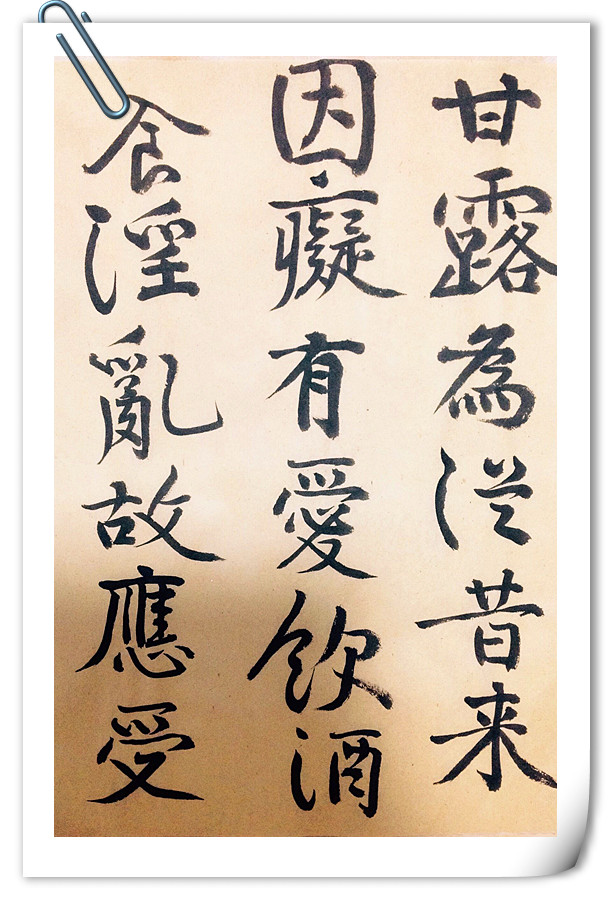 甘露為從昔来
因癡有愛飲酒
食淫亂故應受